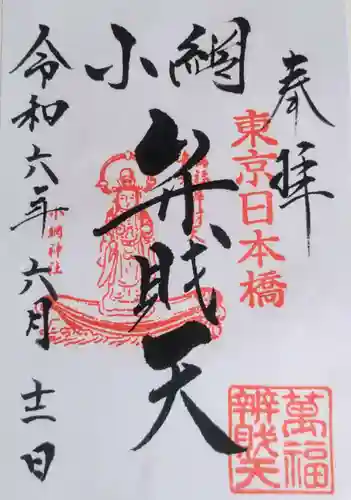 奉拝
東京日本橋
小網
弁財天
小網神社
萬福
辨財天
令和六年六月十二日